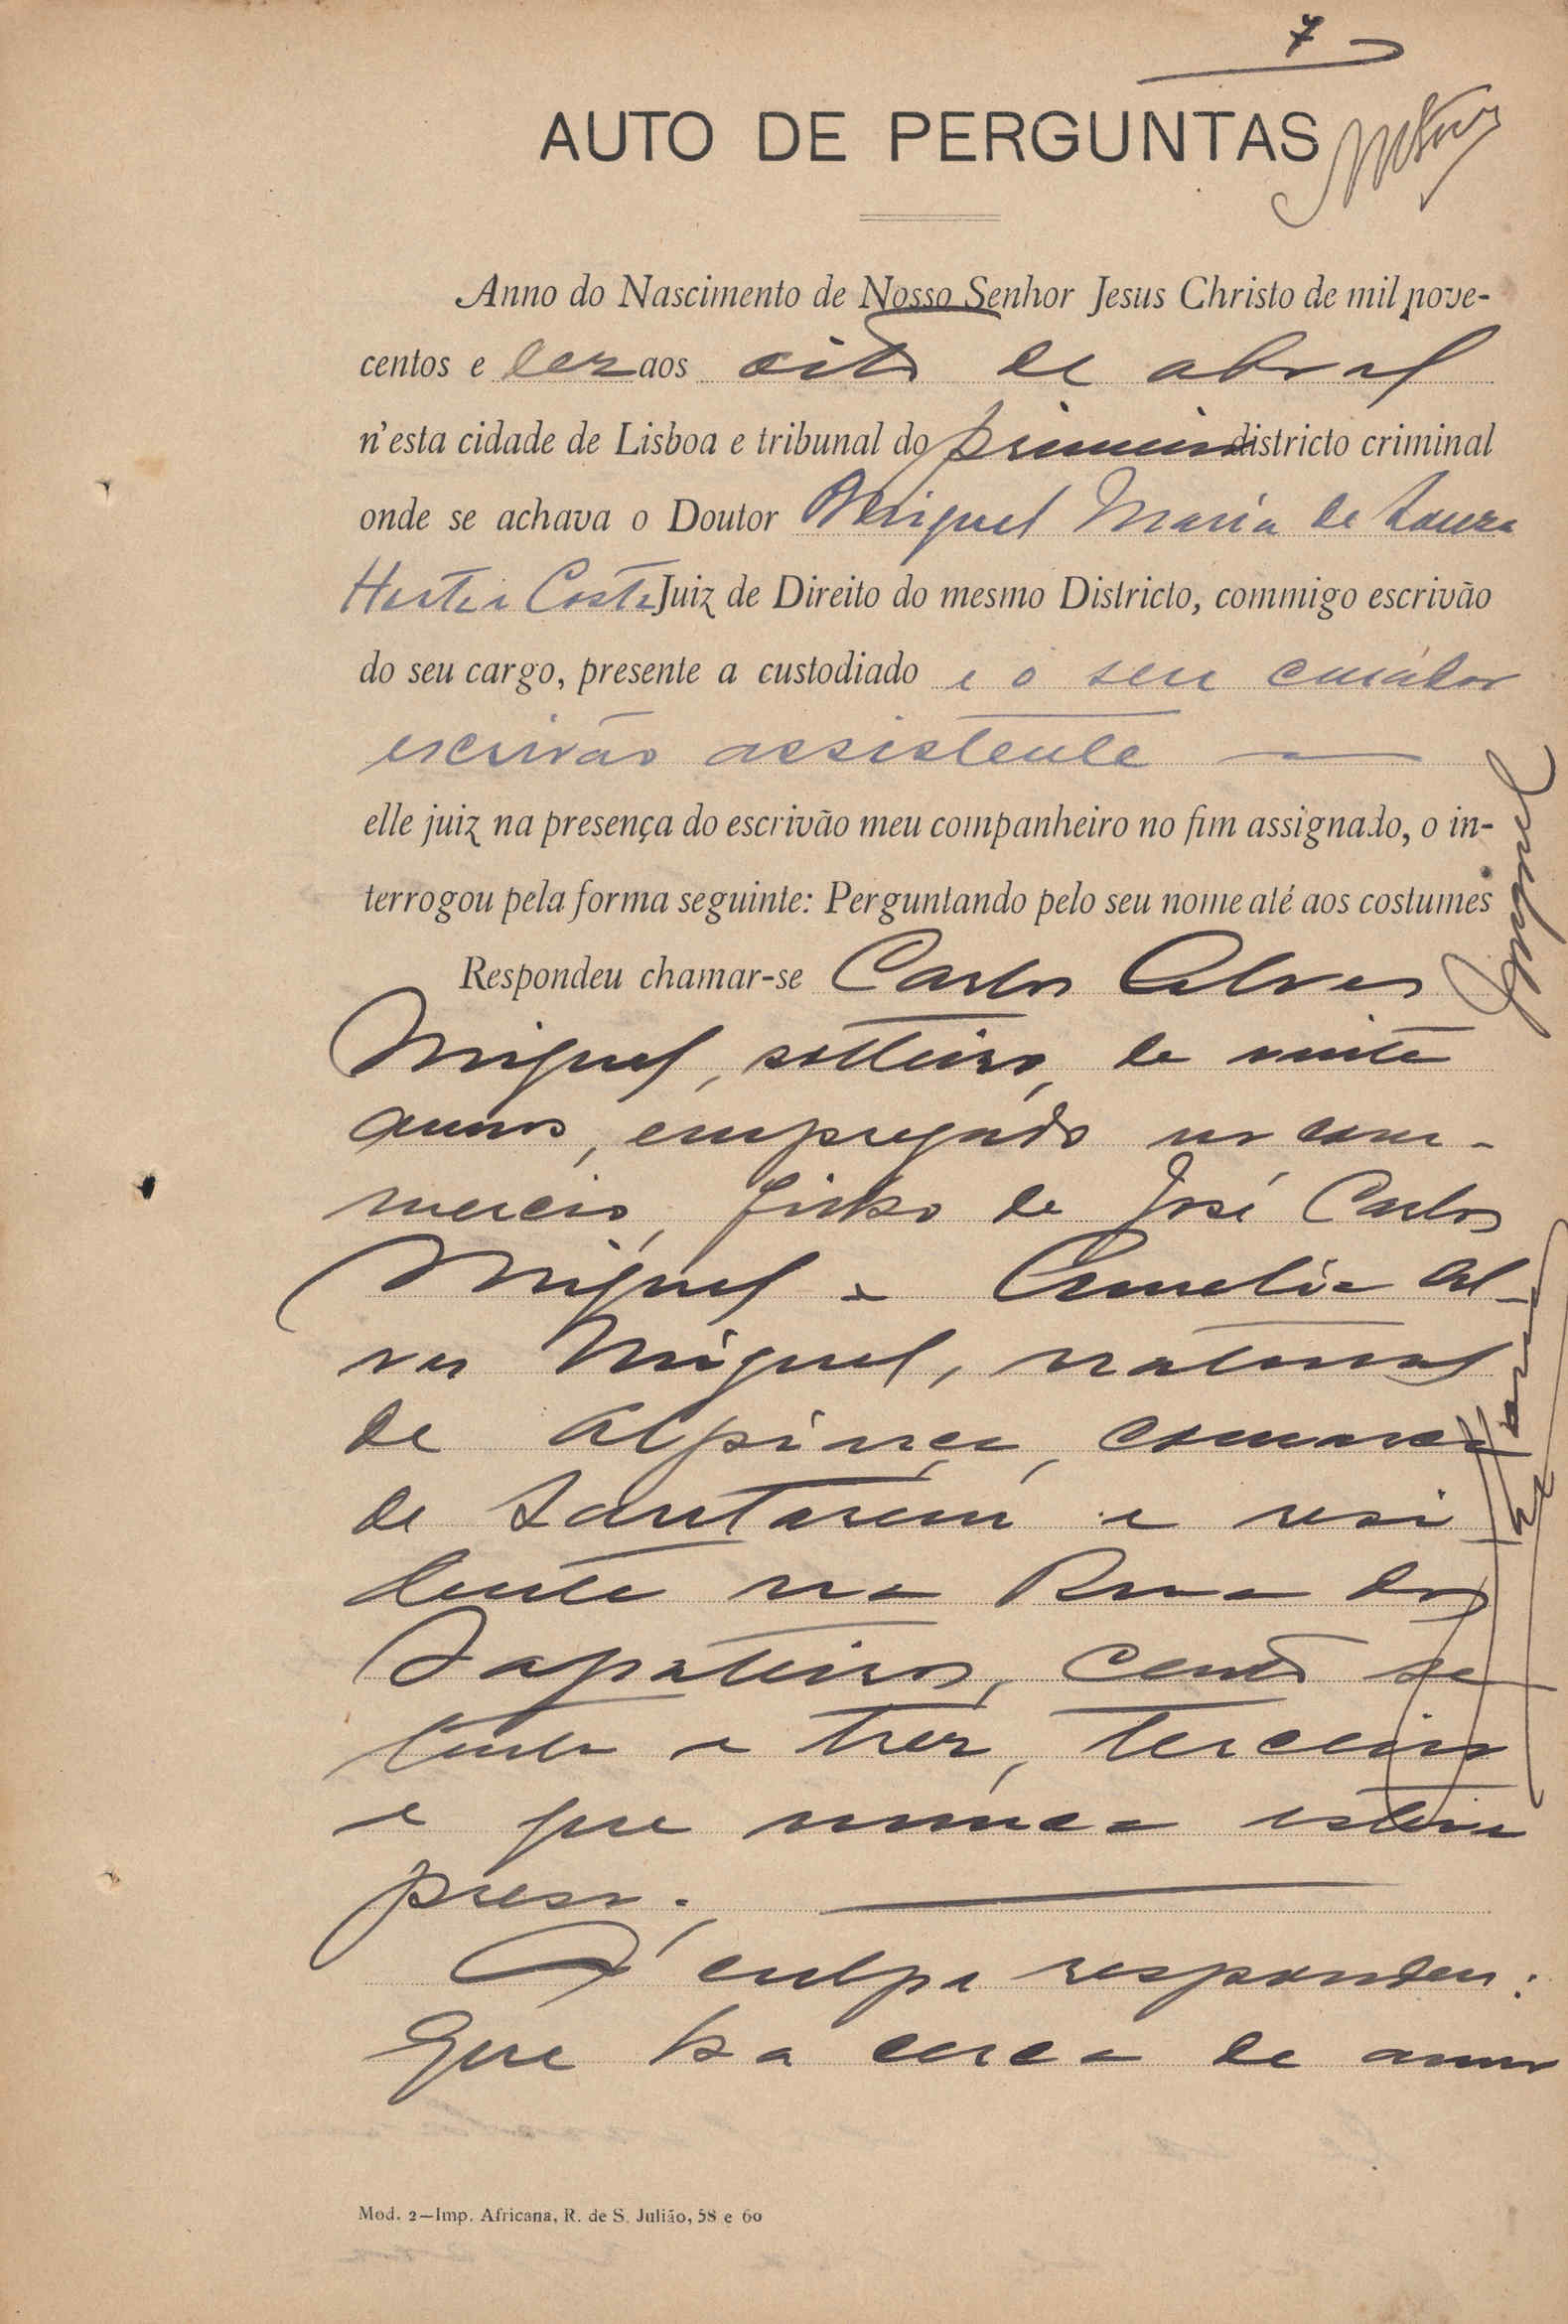 7
AUTO DE PERGUNTAS
Anno do Nascimento de Nosso Senhor Jesus Christo de mil nove-
centos e dez aos oito de abril
n'esta cidade de Lisboa e tribunal do primeiro districto criminal
onde se achava o Doutor Miguel Maria de Souza
Horta e Costa Juiz de Direito do mesmo Districto, commigo escrivão
do seu cargo, presente a custodiado e o seu curador
escrivão assistente
elle juiz na presença do escrivão meu companheiro no fim assignado, o in-
terrogou pela forma seguinte: Perguntando pelo seu nome até aos costumes
Respondeu chamar-se Carlos Alves
Miguel, solteiro, de vinte
annos, empregado no com-
mercio, filho de José Carlos
Miguel e Amelia Al-
ves Miguel, natural
de Alpiarça, comarca
de Santarem e resi
dente na Rua dos
Sapateiros, cento se
tenta e trez, terceiro
e que nunca esteve
preso.
Á culpa respondeu:
Que ha cerca de annos
Miguel
Mod. 2—Imp. Africana, R. de S. Julião, 58 e 60